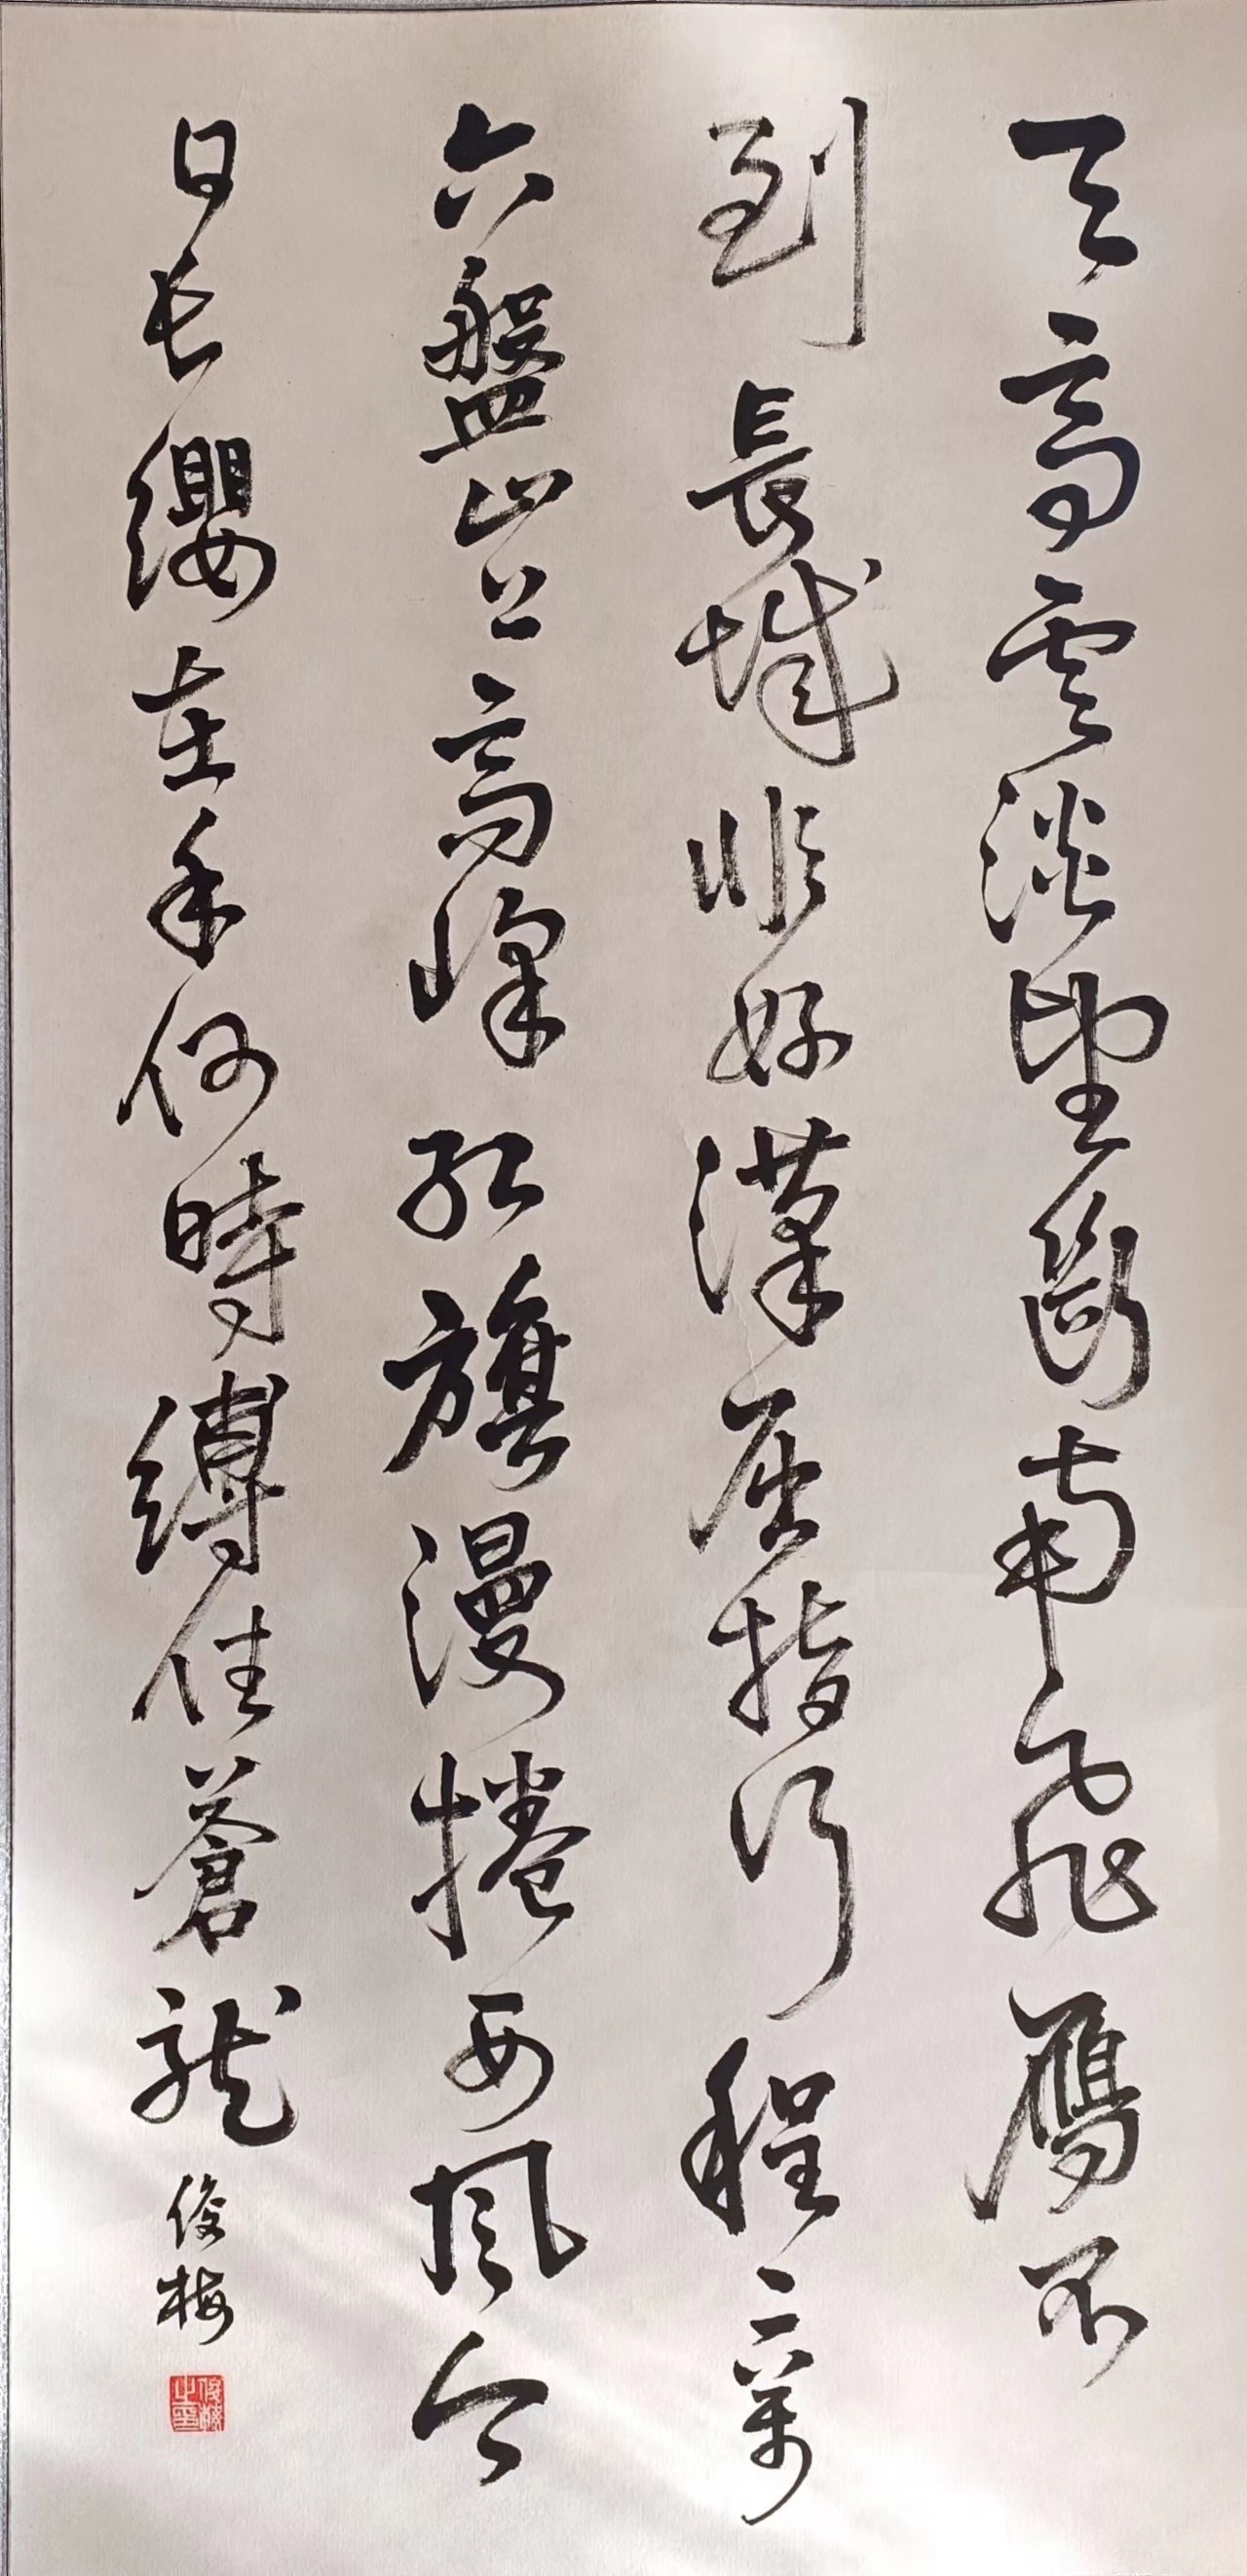 天高雲淡望斷南飛雁不
到長城非好漢屈指行程二萬
六盤山上高峰紅旗漫捲西風今
日長纓在手何時縛住蒼龍
俊梅
俊梅之印